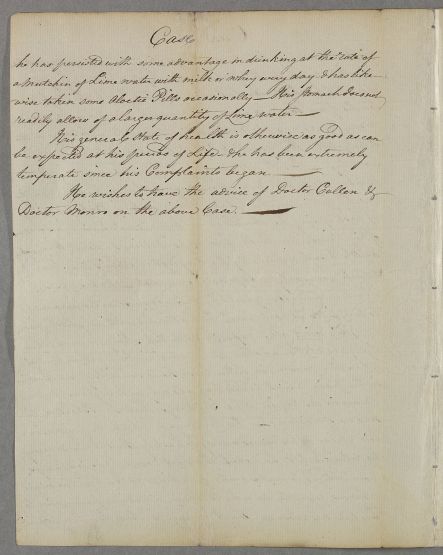 Case
he has persisted with some advantage in drinking at the rate of
a mutchkin of Lime water with milk or whey every day & has like-
wise taken some Aloetic Pills occasionally — His stomach does not
readily allow of a larger quantity of Lime water —
His general state of health is otherwise as good as can
be expected at his period of Life & he has been extremely
temperate since his Complaints began —
He wishes to have the advice of Doctor Cullen &
Doctor Monro on the above Case. —